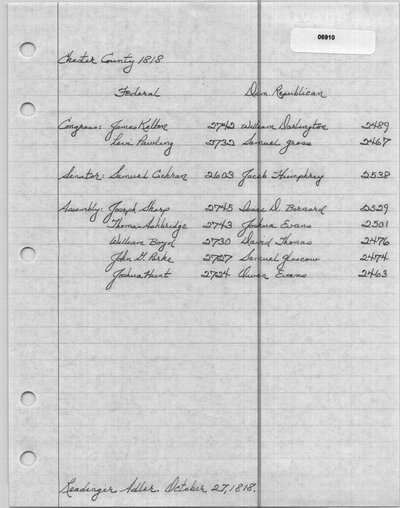 06910
Chester County 1818
Federal Dem. Republican
Congress: James Kelton 2742 William Darlington 2489
Levi Pawling 2732 Samuel Gross 2467
Senator: Samuel Cochran 2603 Jacob Humphrey 2538
Assembly: Joseph Sharp 2745 Isaac D. Barnard 2529
Thomas Ashbridge 2743 Joshua Evans 2501
William Boyd 2730 David Thomas 2476
John G. Parke 2727 Samuel Glascow 2474
Joshua Hunt 2724 Owen Evans 2463
Readinger Adler. October 27, 1818.